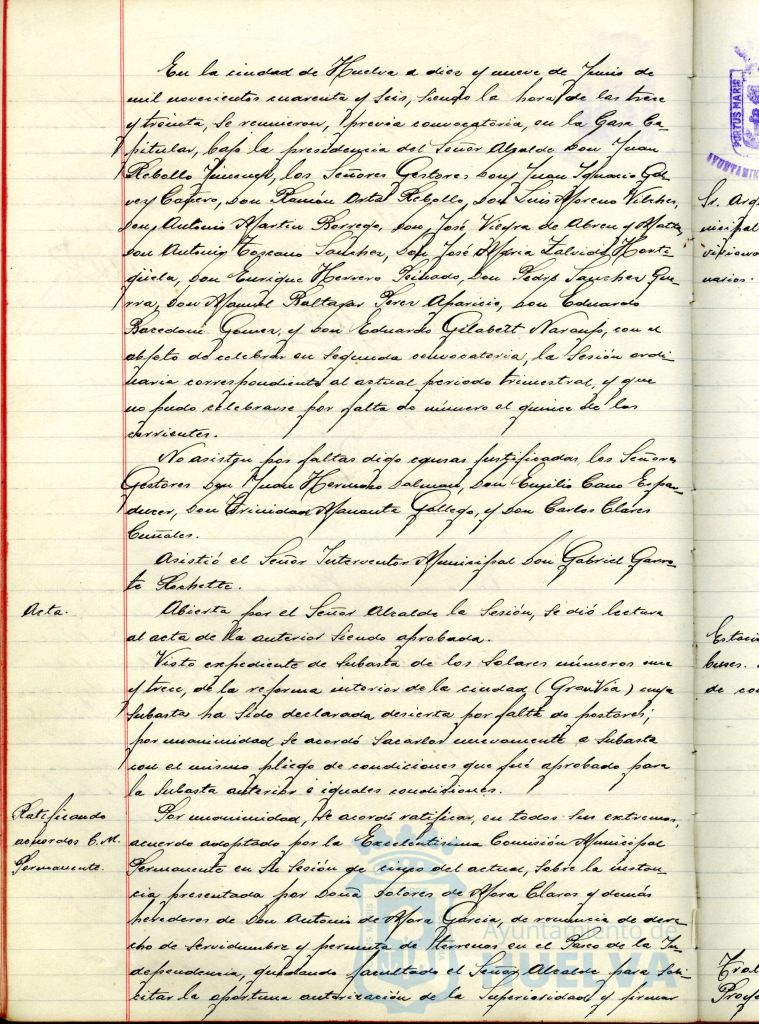 En la ciudad de Huelva a diez y nueve de Junio de
mil novecientos cuarenta y seis, siendo la hora de las trece
y treinta, se reunieron, previa convocatoria, en la Casa Ca-
pitular, bajo la presidencia del Señor Alcalde Don Juan
Rebollo Jimenez, los Señores Gestores Don Juan Ignacio Gál-
vez Cañero, Don Ramón Arta Rebollo, Don Luis Moreno Vilches,
Don Antonio Martin Borrego, Don José Vieyra de Abreu y Motta,
Don Antonio Toscano Sanchez, Don José Maria Zalvide Horti-
güela, Don Enrique Herrero Peinado, Don Pedro Sanchez Gue-
rra, Don Manuel Baltazar Perez Aparicio, Don Eduardo
Gomez, y Don Eduardo Gilabert Naranjo, con el
objeto de celebrar en segunda convocatoria, la Sesión ordi-
naria correspondiente al actual periodo trimestral, y que
no pudo celebrarse por falta de número el quince de los
corrientes.
No asisten por faltas digo causas justificadas, los Señores
Gestores Don Juan Hermoso Dalman, Don Emilio Cano
Don Trinidad Gallego, y Don Carlos Clares
Asistió el Señor Interventor Municipal Don Gabriel Garro-
te
Acta.
Abierta por el Señor Alcalde la Sesión, se dió lectura
al acta de la anterior siendo aprobada.
Visto expediente de subasta de los Solares números once
y trece, de la reforma interior de la ciudad (Gran Via) cuya
subasta ha sido declarada desierta por falta de postores;
por unanimidad se acordó sacarlos nuevamente a subasta
con el mismo pliego de condiciones que fué aprobado para
la subasta anterior e iguales condiciones.
Ratificando
acuerdos C. M.
Permanente.
Por unanimidad, se acordó ratificar, en todos sus extremos,
acuerdo adoptado por la Excelentisima Comisión Municipal
Permanente en su Sesión de cinco del actual, sobre la instan-
cia presentada por Doña Dolores de Mora Claros y demás
herederos de Don Antonio de Mora Garcia, de renuncia de dere-
cho de servidumbre y permuta de terrenos en el Paseo de la In-
dependencia, quedando facultado el Señor Alcalde para soli-
citar la oportuna autorización de la Superioridad y firmar
Ayuntamiento de
HUELVA
PORTUS MARIS
Sr. Arq
nicipal
narios.
de co